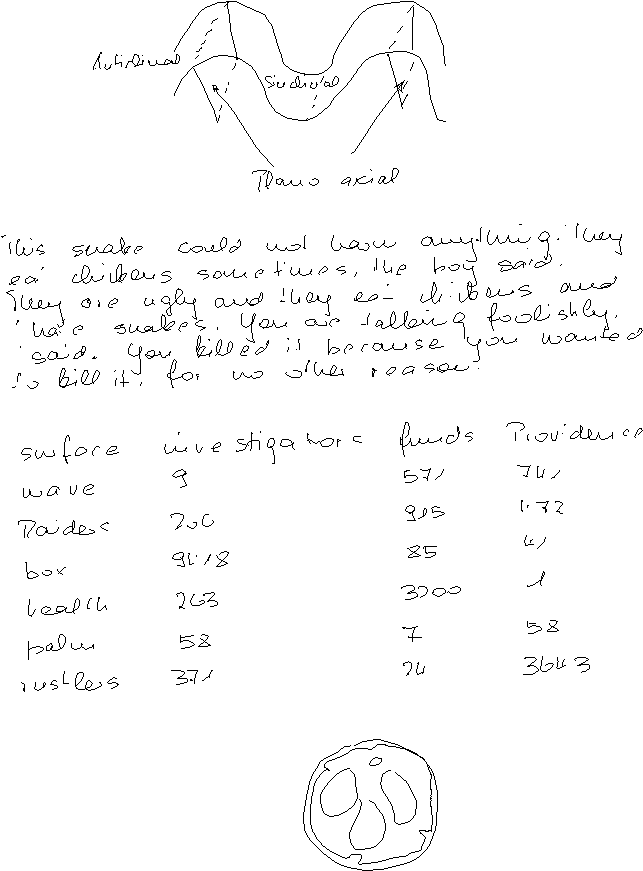 Anticlinal
Sinclinal
Plano axial
This snake could not harm anything. They
eat chickens sometimes, the boy said.
They are ugly and they eat chickens and
I hate snakes. You are talking foolishly,
I said. You killed it because you wanted
to kill it, for no other reason.
surface investigators funds Providence
wave 9 571 741
Raiders 200 915 4.72
box 94.18 85 41
health 263 3200 1
palm 58 7 58
rustlers 371 24 3643